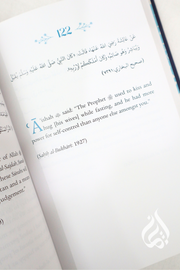 122
عَنْ عَائِشَةَ رَضِيَ اللهُ عَنْهَا، قَالَتْ: كَانَ النَّبِيُّ صَلَّى اللهُ عَلَيْهِ وَسَلَّمَ يُقَبِّلُ
وَيُبَاشِرُ وَهُوَ صَائِمٌ، وَكَانَ أَمْلَكَكُمْ لِإِرْبِهِ
صحيح البخاري
Āishah said: "The Prophet ﷺ used to kiss and
hug [his wives] while fasting, and he had more
power for self-control than anyone else amongst you."
(Sahih al Bukhari: 1927)
of Allah
judgement."